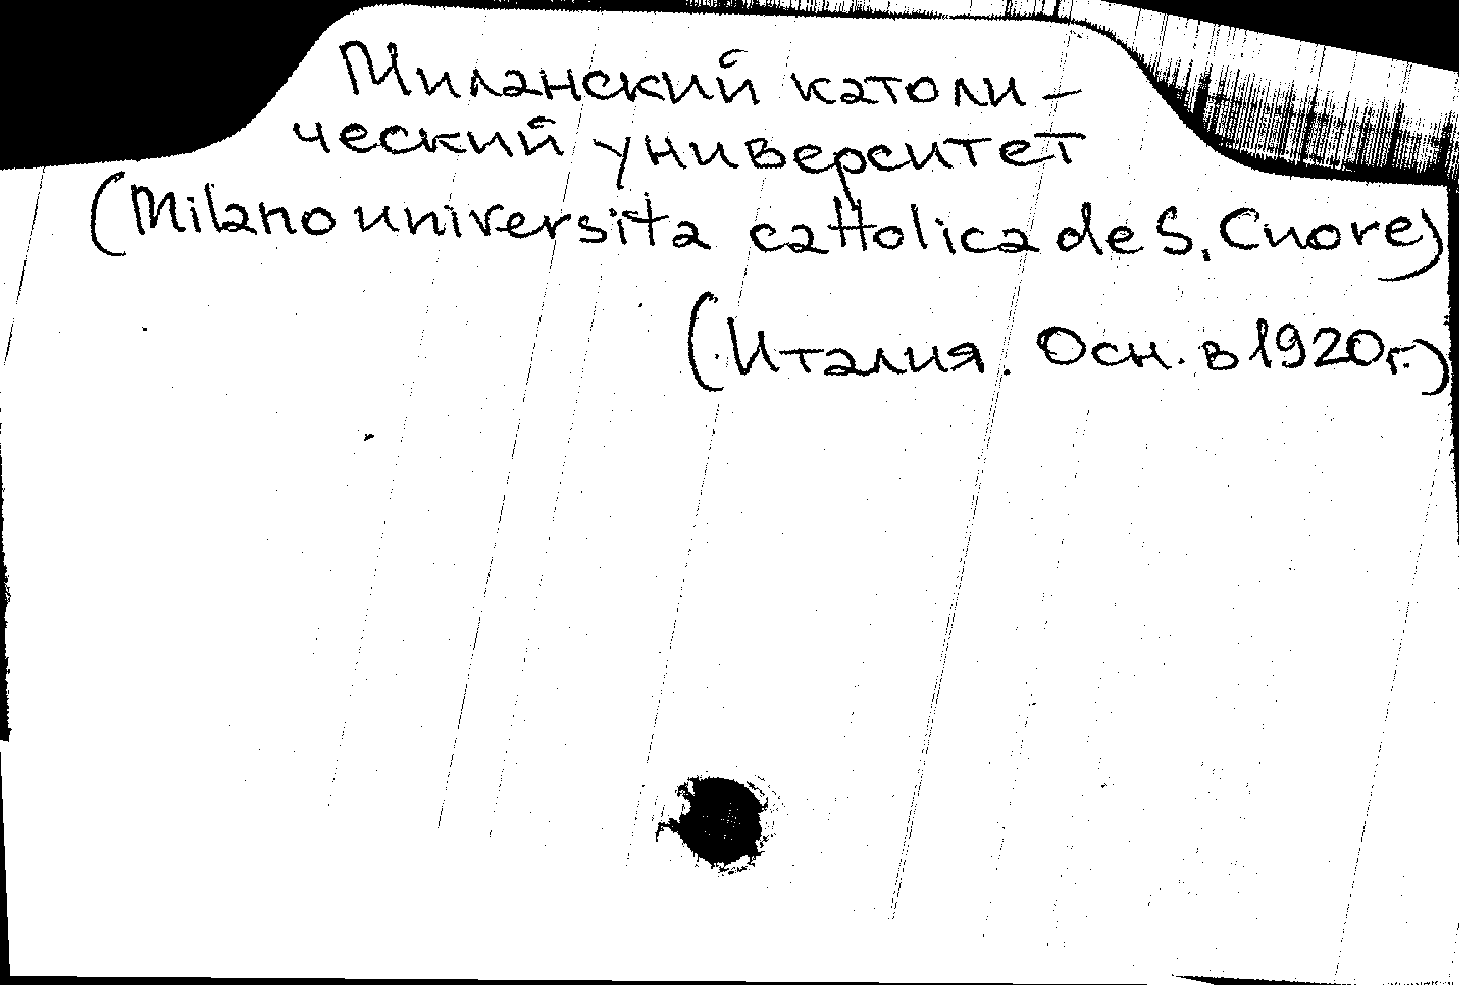 Миланский католи-
ческий университет
(Milano universita cattolica de S. Cuore)
(Италия. Осн. в 1920г.)